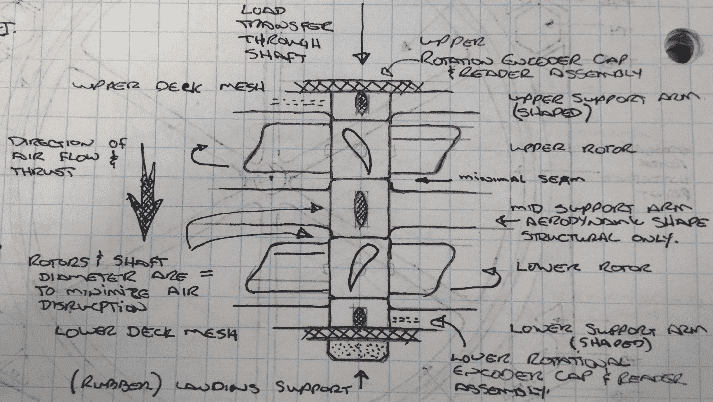 I.
LOAD
TRANSFER
THROUGH
SHAFT
UPPER
ROTATION ENCODER CAP
& READER ASSEMBLY
UPPER DECK MESH
UPPER SUPPORT ARM
(SHAPED)
DIRECTION OF
AIR FLOW &
THRUST
UPPER ROTOR
MINIMAL SEAM
MID SUPPORT ARM
AERODYNAMIC SHAPE
STRUCTURAL ONLY.
ROTORS & SHAFT
DIAMETER ARE =
TO MINIMIZE AIR
DISRUPTION
LOWER ROTOR
LOWER DECK MESH
LOWER SUPPORT ARM
(SHAPED)
LOWER ROTATIONAL
ENCODER CAP & READER
ASSEMBLY.
(RUBBER) LANDING SUPPORT